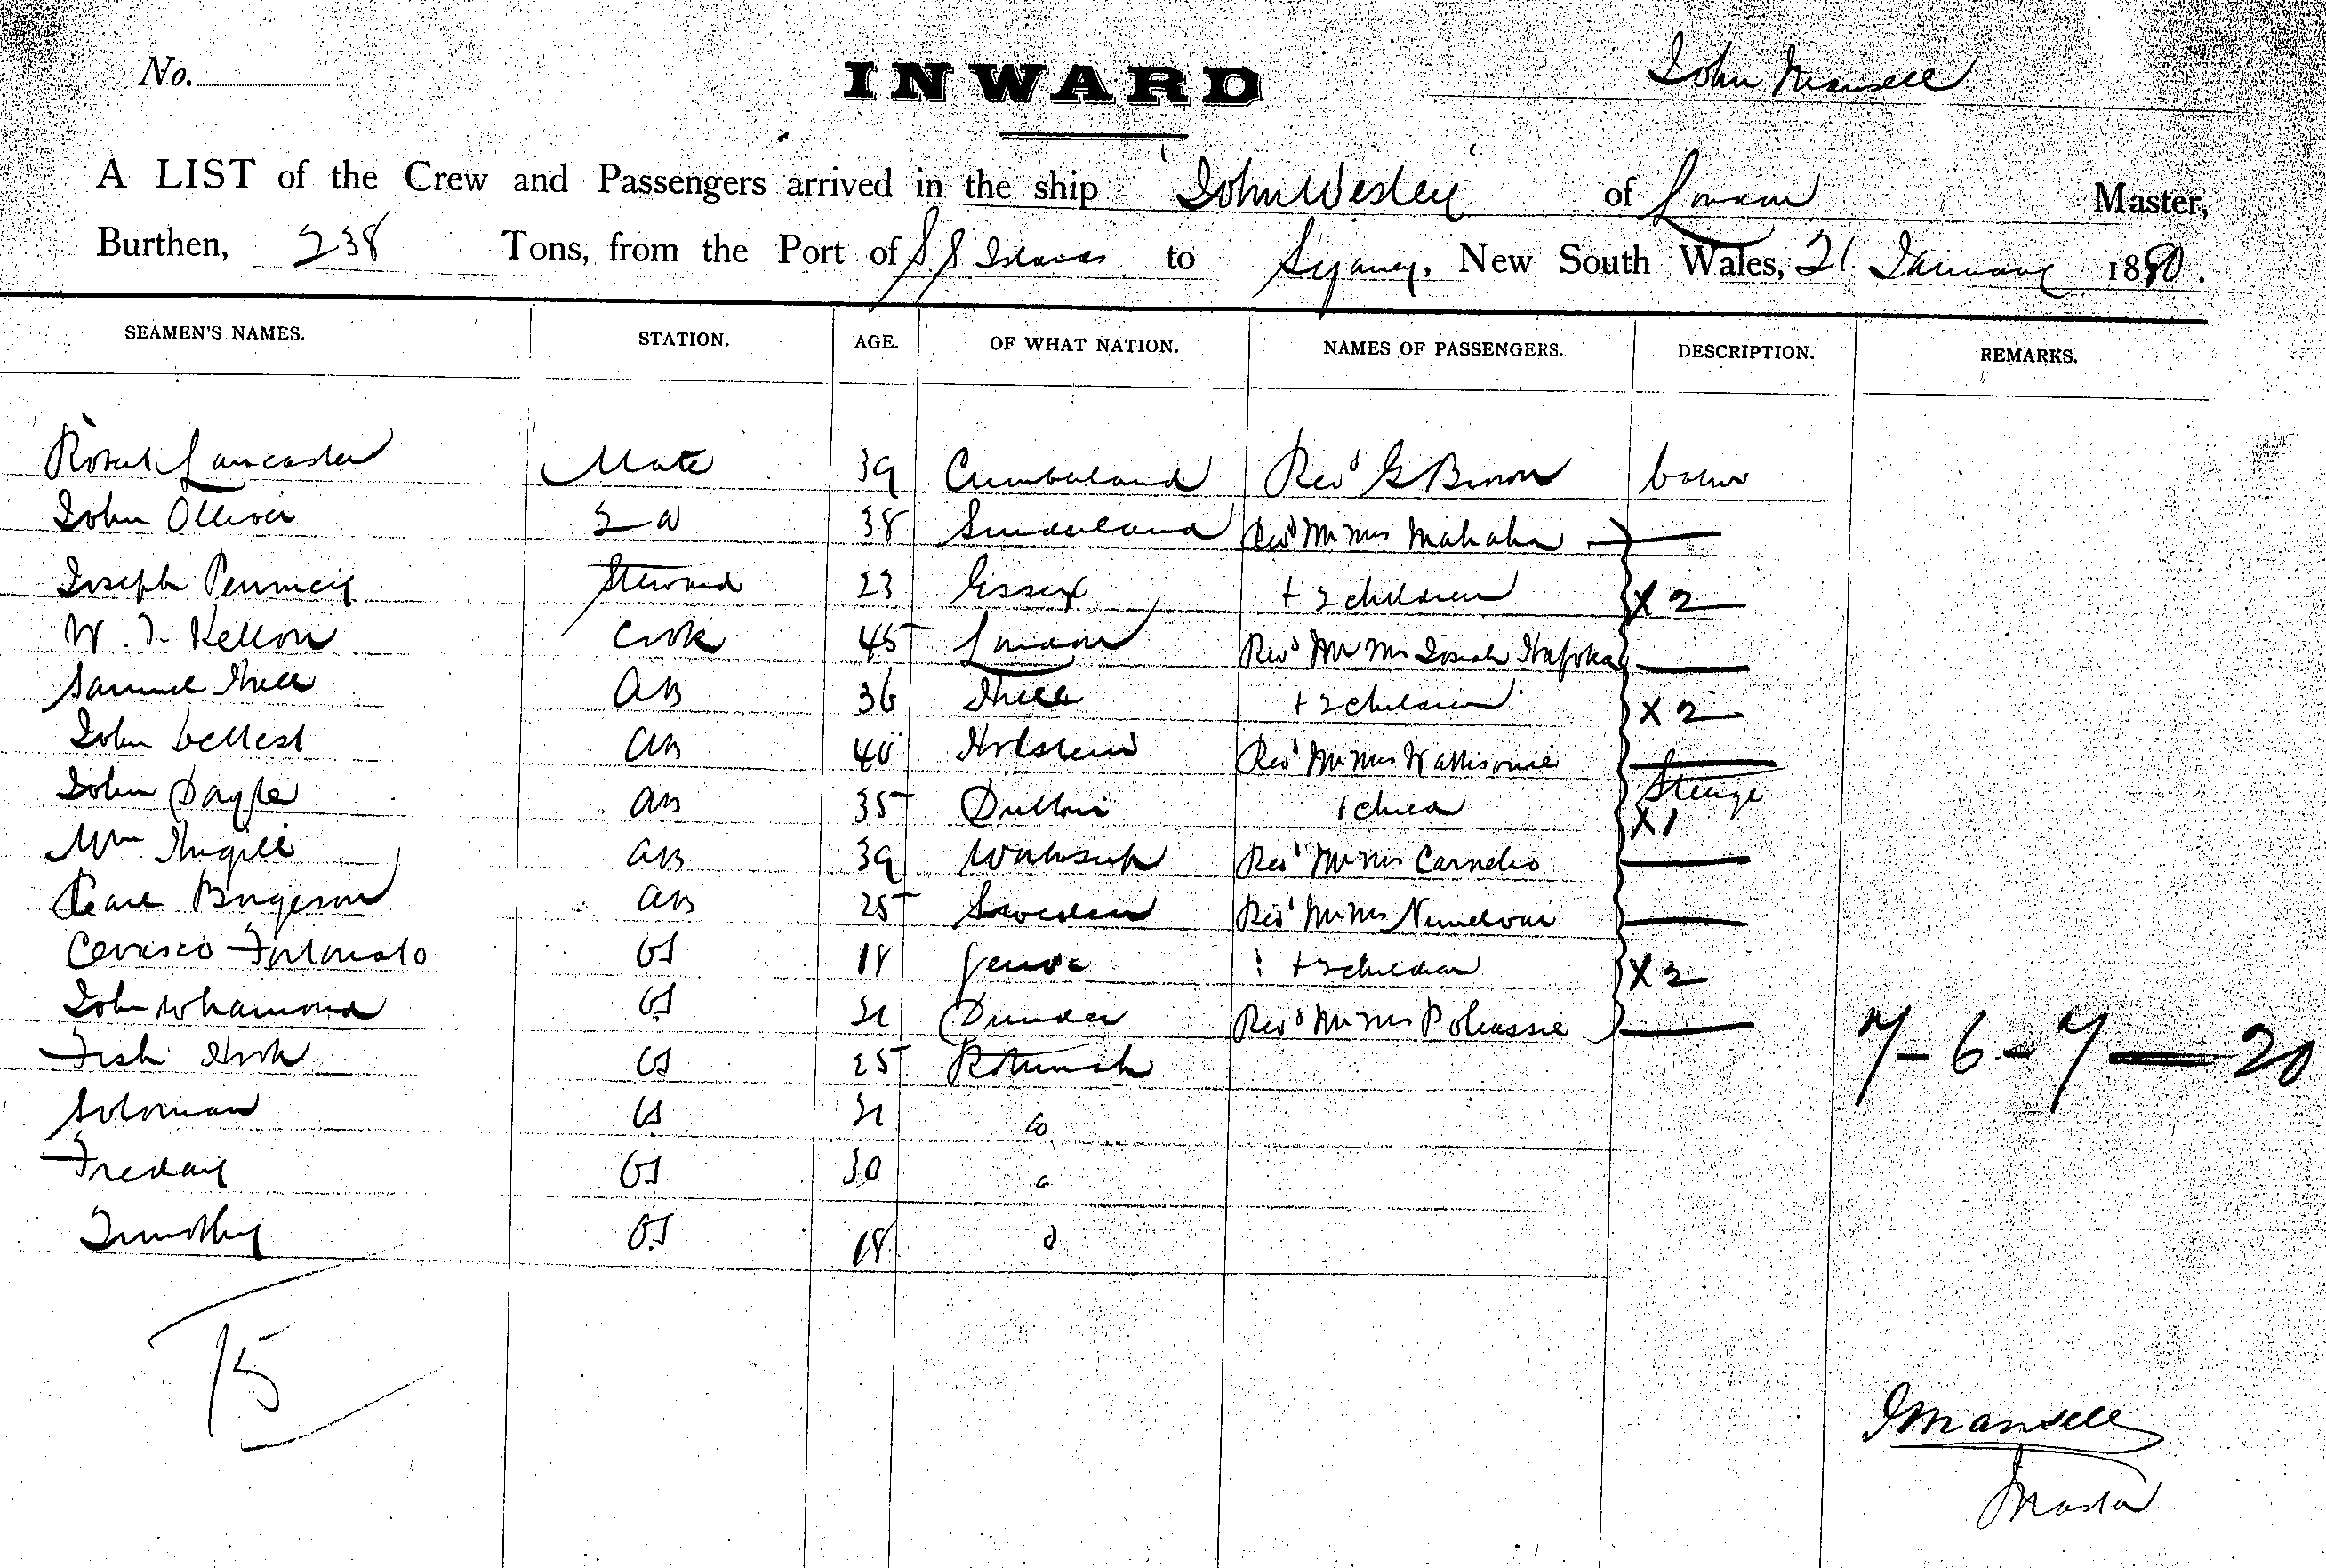 No.
INWARD
John Mansell
A LIST of the Crew and Passengers arrived in the ship John Wesley of London Master,
Burthen, 238 Tons, from the Port of S S Islands to Sydney, New South Wales, 21 January 1880.
SEAMEN'S NAMES. STATION. AGE. OF WHAT NATION. NAMES OF PASSENGERS. DESCRIPTION. REMARKS.
Robert Lancaster Mate 39 Cumberland Revd G Brown
John Olliver 2d 38 Sunderland Revd Mr Mrs
Joseph Steward 23 Essex + 2 children X 2
W. T. Cook 45 London Revd Mr Mrs Josiah
Samuel Hull AB 36 Hull + 2 children X 2
John AB 40 Holstein Revd Mr Mrs
John AB 35 Dublin 1 child Steerage X 1
Wm AB 39 Revd Mr Mrs
Carl AB 25 Sweden Revd Mr Mrs
Fortunato OS 18 Genoa + 2 children X 2
John Whamond OS 21 Dundee Revd Mr Mrs
Fish Hook OS 25 Rotumah
Soloman OS 21 do
Friday OS 30
Timothy OS 18
7 - 6 - 7 — 20
15
J Mansell
Master